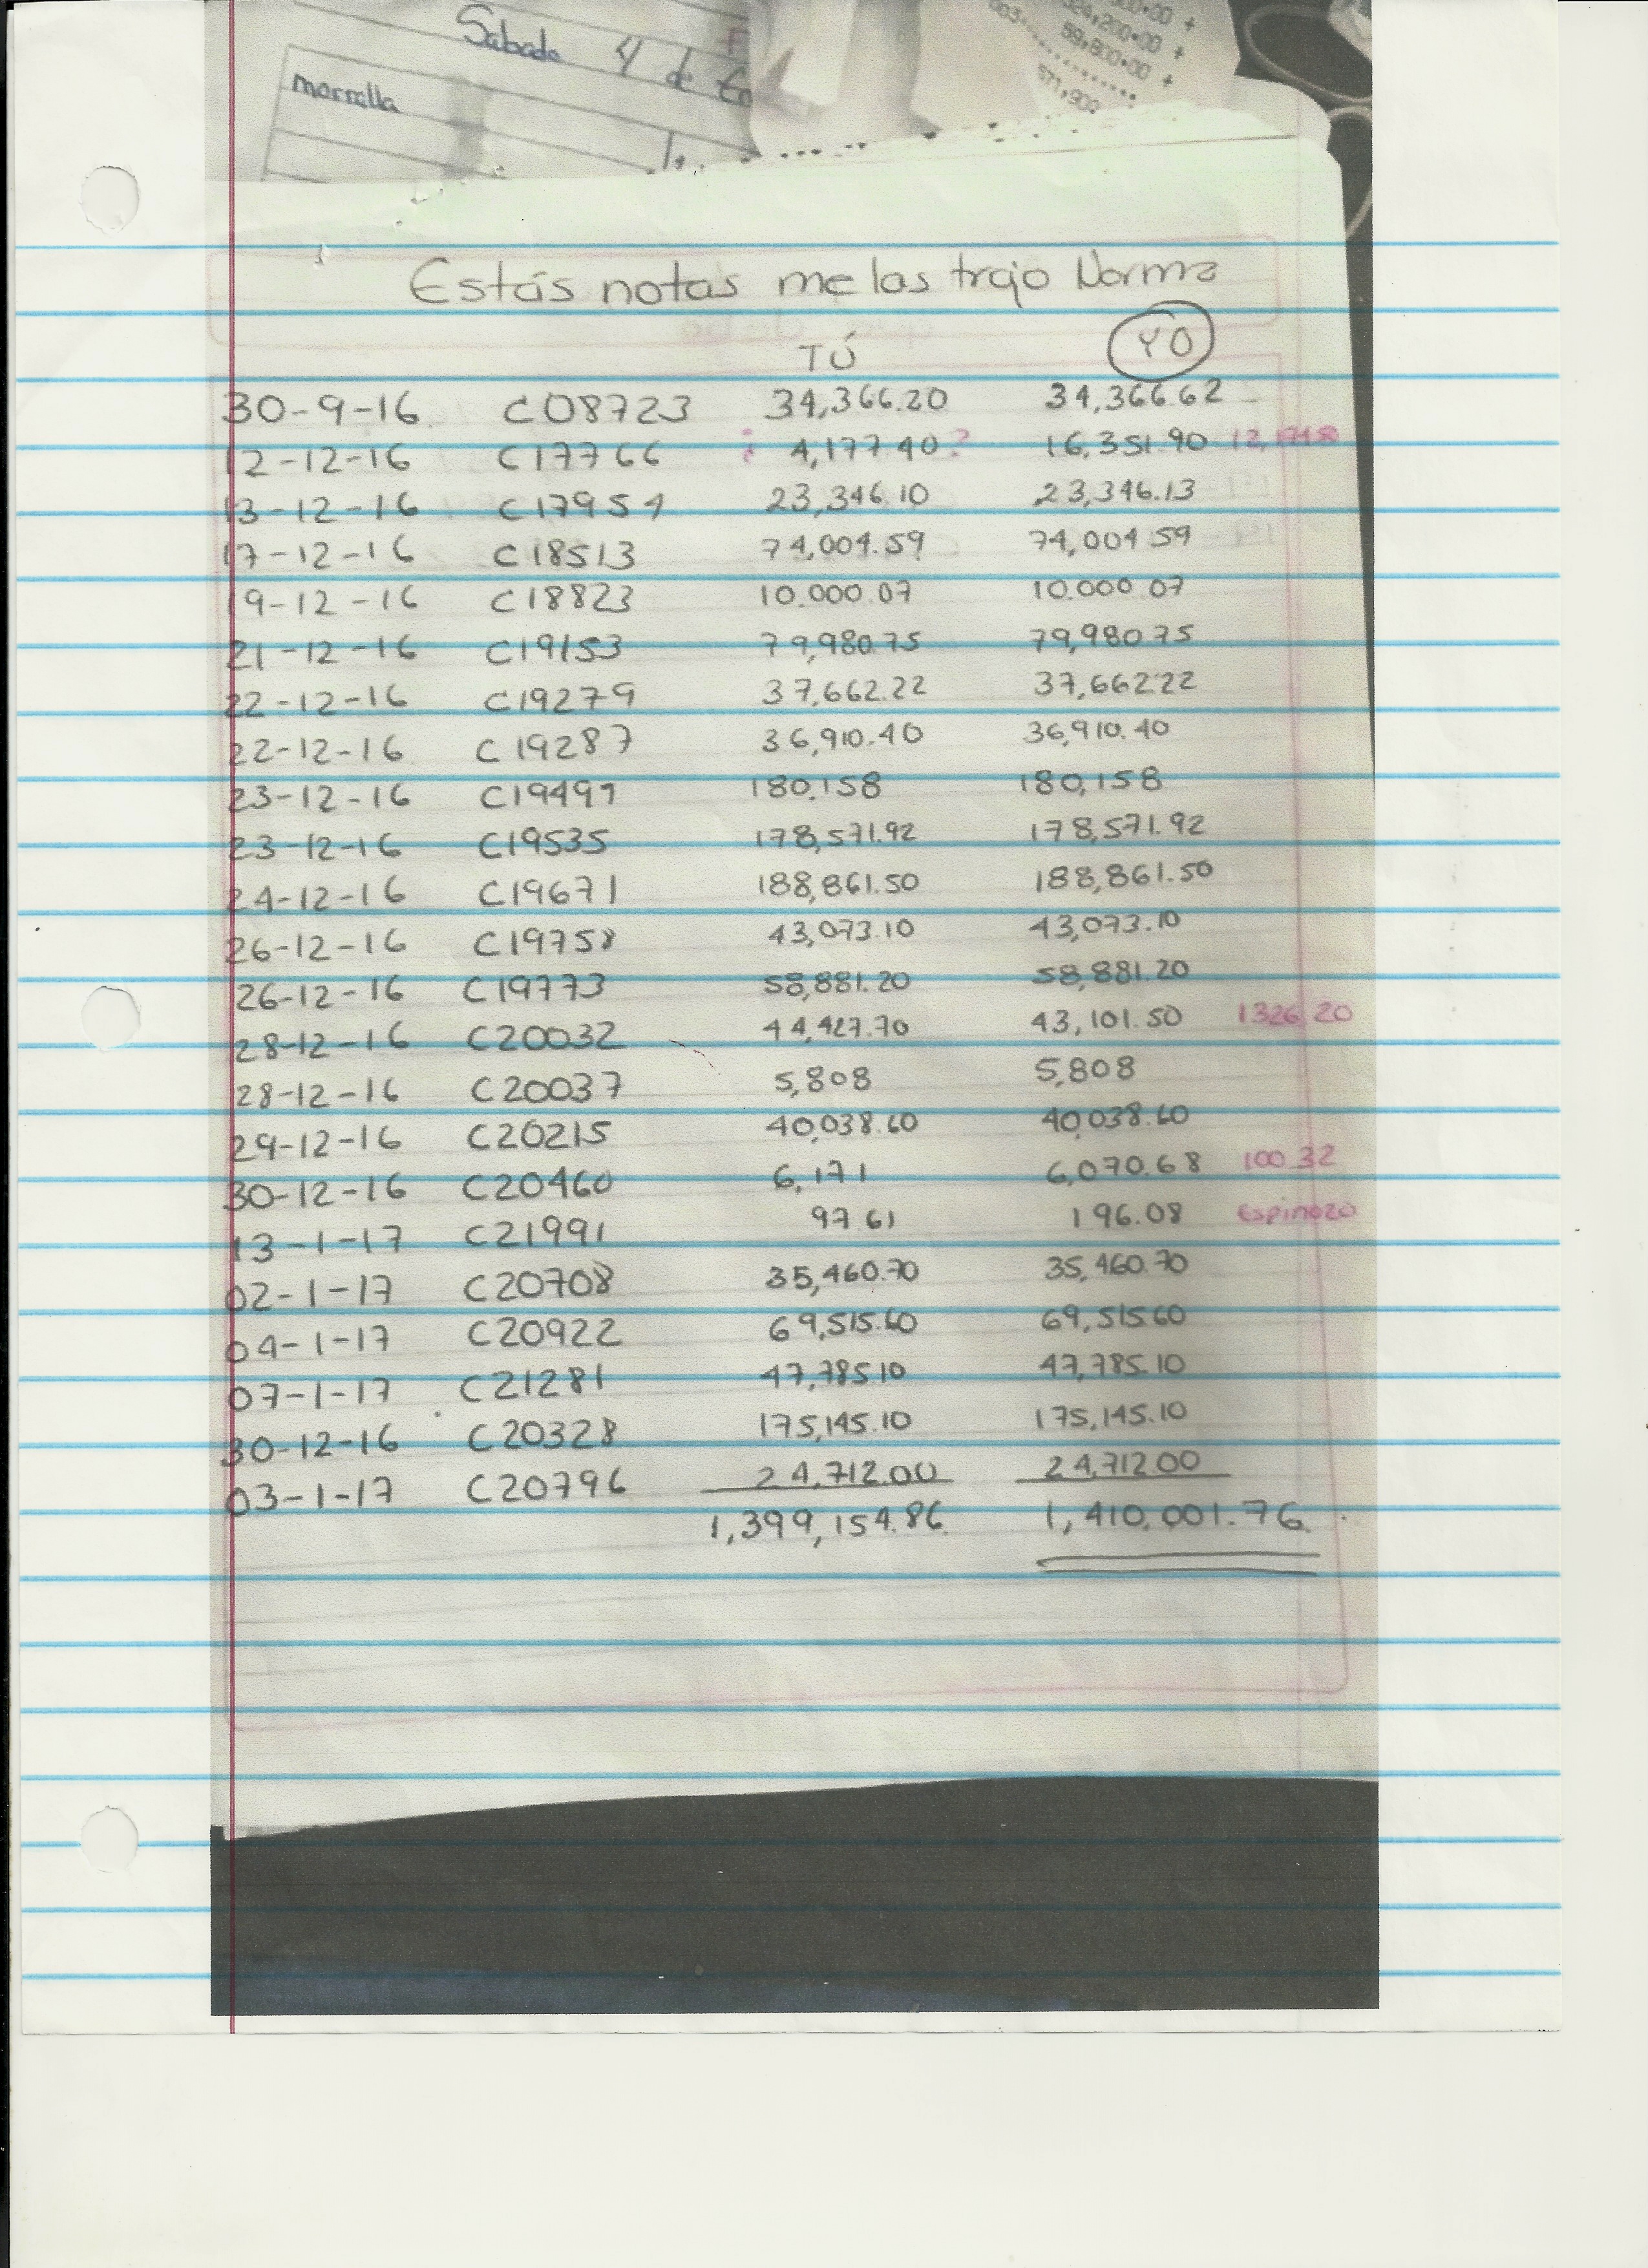 Sabado 4 de En
morralla
24,200.00 +
59,800.00 +
571,900
Estás notas me las trajo Norma
TÚ YO
30-9-16 C08723 34,366.20 34,366.62
12-12-16 C17766 ¿ 4,177.40? 16,351.90
13-12-16 C17954 23,346.10 23,346.13
17-12-16 C18513 74,004.59 74,004.59
19-12-16 C18823 10.000.07 10.000.07
21-12-16 C19153 79,980.75 79,980.75
22-12-16 C19279 37,662.22 37,662.22
22-12-16 C19287 36,910.40 36,910.40
23-12-16 C19497 180,158 180,158
23-12-16 C19535 178,571.92 178,571.92
24-12-16 C19671 188,861.50 188,861.50
26-12-16 C19758 43,073.10 43,073.10
26-12-16 C19773 58,881.20 58,881.20
28-12-16 C20032 44,427.70 43,101.50 1326.20
28-12-16 C20037 5,808 5,808
29-12-16 C20215 40,038.60 40,038.60
30-12-16 C20460 6,171 6,070.68 100.32
13-1-17 C21991 97.61 196.08 Espinozo
02-1-17 C20708 35,460.70 35,460.70
04-1-17 C20922 69,515.60 69,515.60
07-1-17 C21281 47,785.10 47,785.10
30-12-16 C20328 175,145.10 175,145.10
03-1-17 C20796 24,712.00 24,712.00
1,399,154.86 1,410,001.76